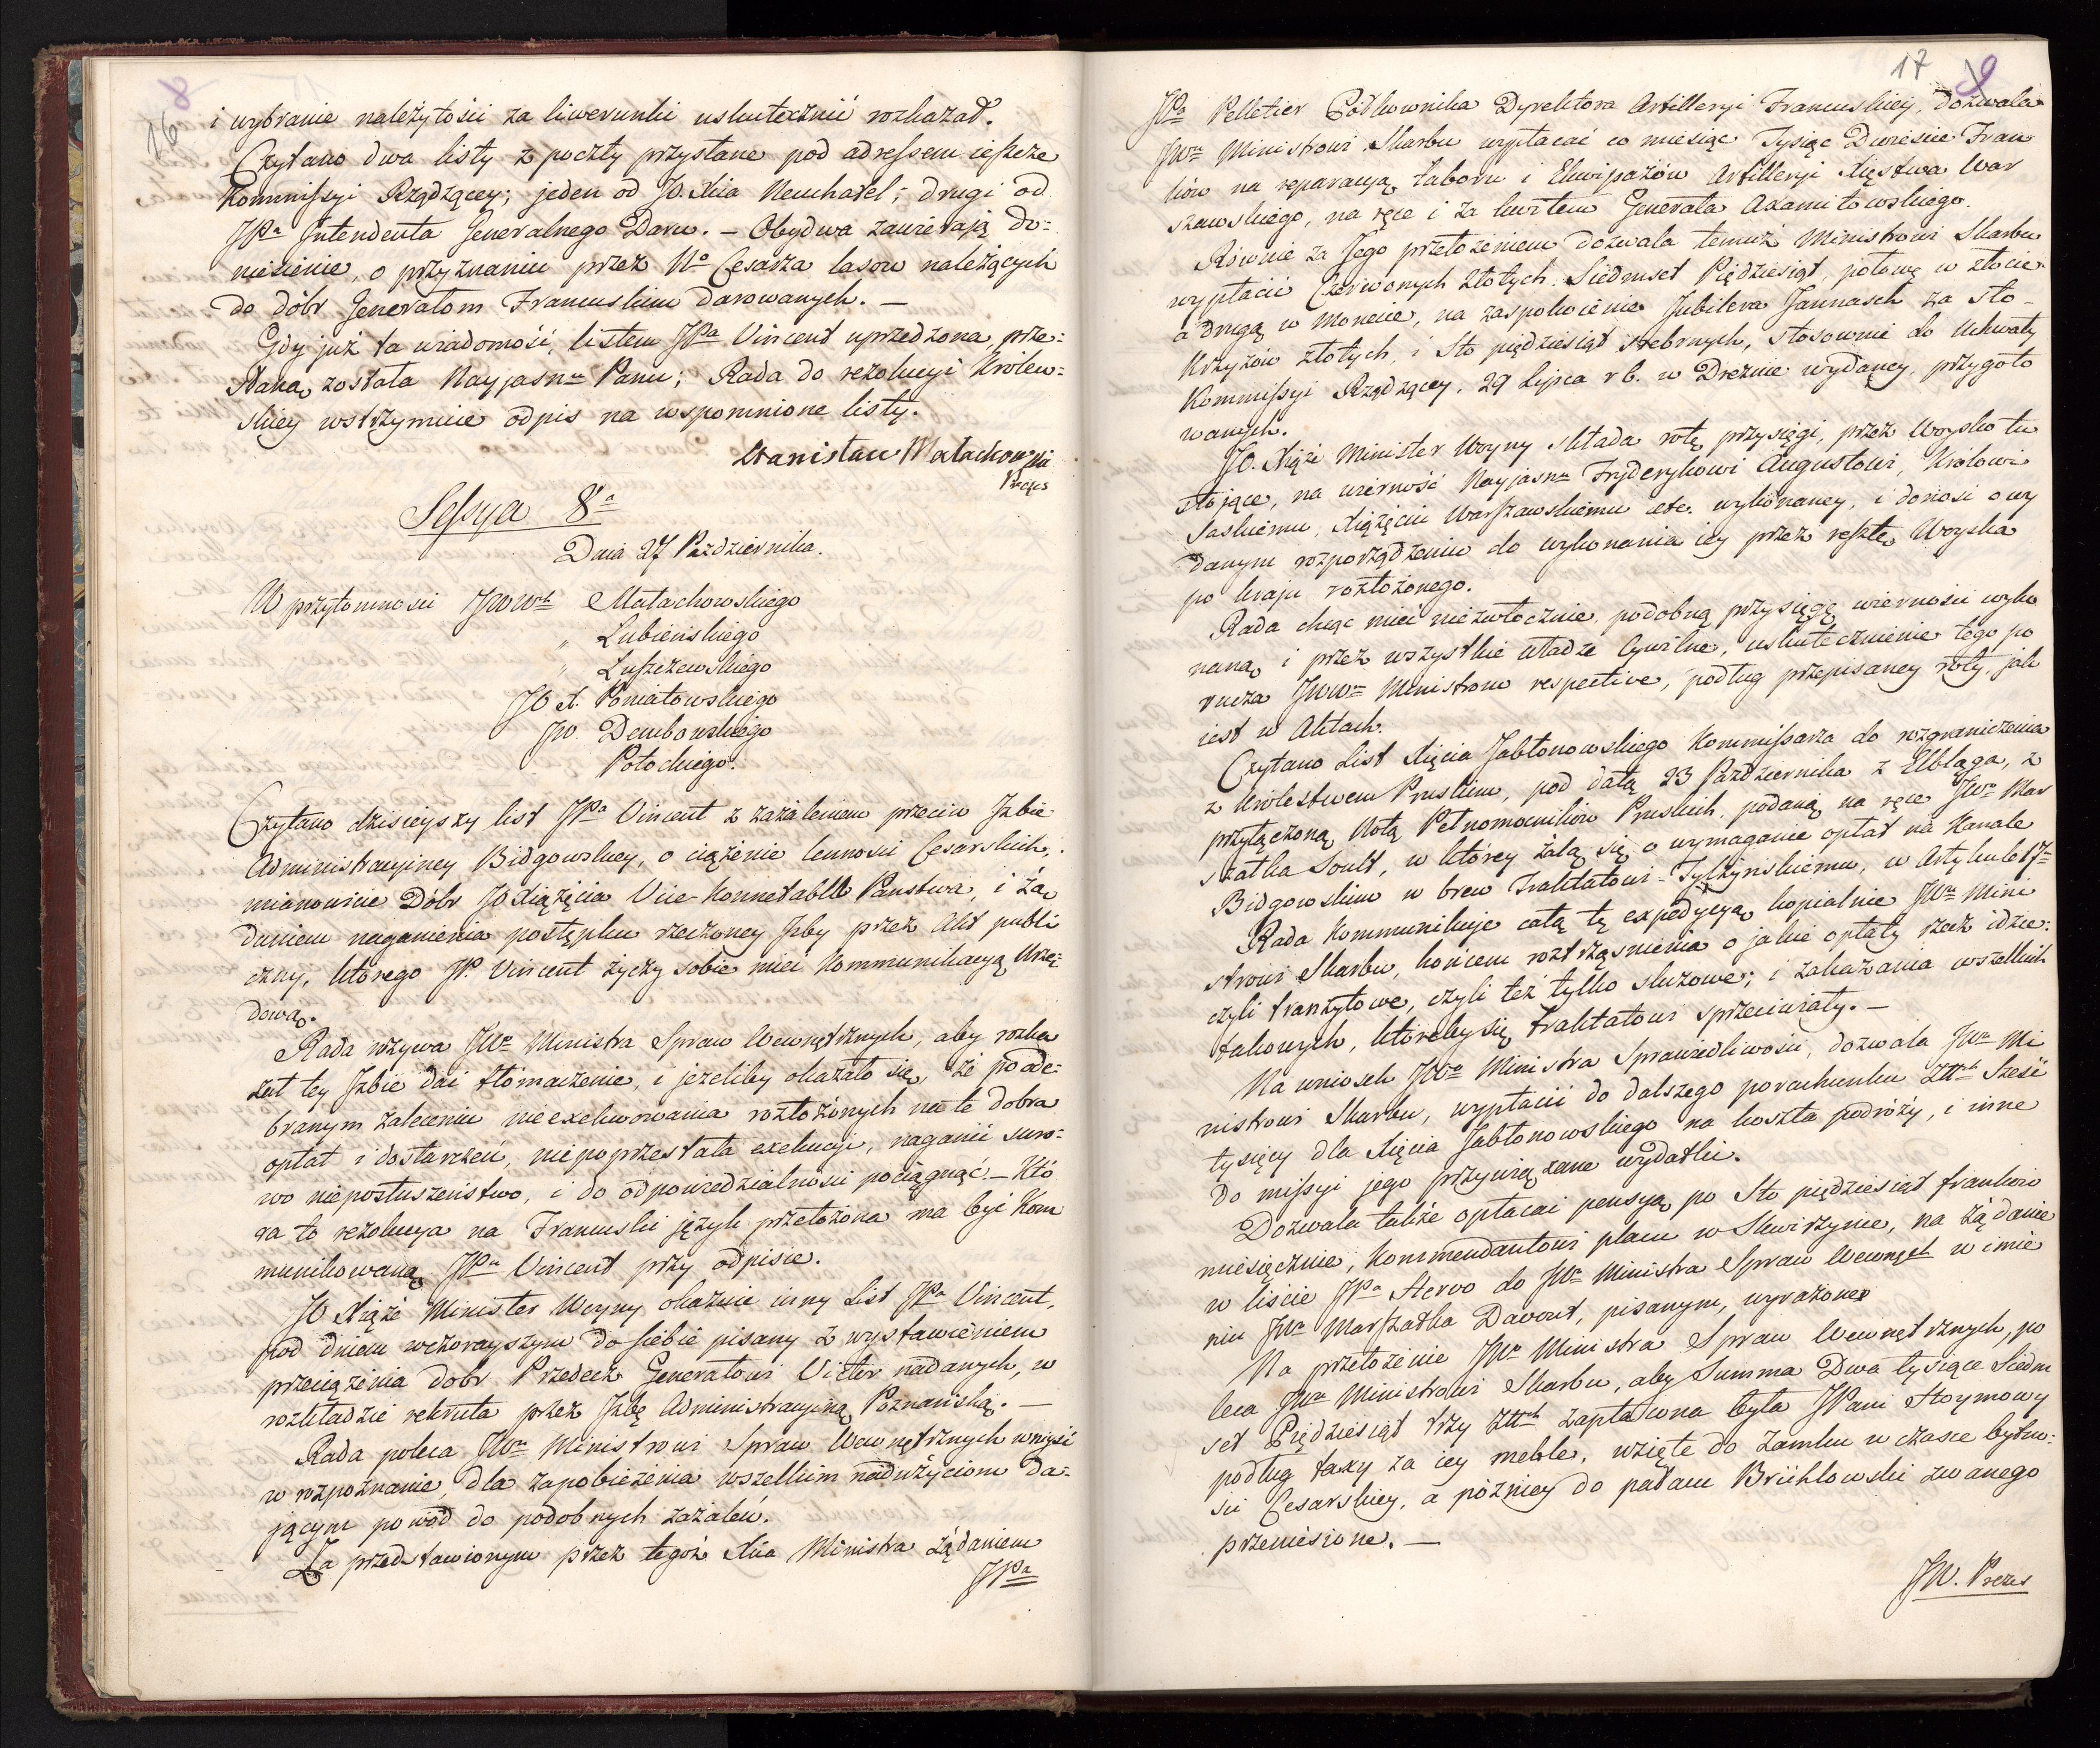 16
8
i wybranie należytości za liwerunki uskutecznić rozkazał.
Czytano dwa listy z poczty przysłane pod adressem ieszcze
Kommissyi Rządzącey; jeden od JO. Xcia Neuchatel; drugi od
JPa Intendenta Generalnego Daru. – Obydwa zawierają do=
niesienie, o przyznaniu przez Na Cesarza lasow należących
do dóbr Generałom Francuskim darowanych. –
Gdy już ta wiadomość, listem JPa Vincent uprzedzona, prze=
słaną została Nayjasnu Panu; Rada do rezolucyi Królew=
skiey wstrzymuie odpis na wspomnione listy.
Stanisław Małachowski
Prezes
Sessya 8a
Dnia 27 Października.
W przytomności JWWch Małachowskiego
" Łubieńskiego
" Luszczewskiego
JO X. Poniatowskiego
JW. Dembowskiego
Potockiego.
Czytano dzisieyszy list JPa Vincent z zażaleniem przeciw Izbie
Administracyiney Bidgowskiey, o ciążenie lennosci Cesarskich,
mianowicie Dóbr JO Xiążęcia Vice-Konnetabla Panstwa, i żą
daniem naganienia postępku rzeczoney Izby przez Akt publi
czny, którego JP. Vincent życzy sobie mieć Kommunikacyą Urzę=
dową.
Rada wzywa JWo Ministra Spraw Wewnętrznych, aby rozka
zał tey Izbie dać tłómaczenie, i jeżeliby okazało się, że po ode=
branym zaleceniu nieexekwowania rozłożonych na te dobra
opłat i dostarczeń, niepoprzestała exekucyi, naganić suro=
wo nieposłuszeństwo, i do odpowiedzialności pociągnąć. – Któ
ra to rezolucya na Francuski język przełożona ma być Kom
munikowaną JPu Vincent przy odpisie.
JO Xiąże Minister Woyny okazuie inny List JPa Vincent,
pod dniem wczorayszym do siebie pisany z wystawieniem
przeciążenia dobr Przedecz Generałowi Victor nadanych, w
rozkładzie rekruta przez Izbę Administracyiną Poznańską. –
Rada poleca JWu Ministrowi Spraw Wewnętrznych wniyść
w rozpoznanie, dla zapobieżenia wszelkim nadużyciom da=
jącym powód do podobnych zażaleń.
Za przedstawionym przez tegoż Xcia Ministra żądaniem
JPa
17
9
JPa Pelletier Półkownika Dyrektora Artilleryi Francuskiey, dozwala
JWu Ministrowi Skarbu wypłacać co miesiąc Tysiąc Dwieście Fran
ków na reparacyą taboru i Ekwipażów Artilleryi Xięstwa War
szawskiego, na ręce i za kwitem Generała Axamitowskiego.
Równie za Jego przełożeniem dozwala temuż Ministrowi Skarbu
wypłacić Czerwonych Złotych Siedmset Piędziesiąt, połowę w złocie
a drugą w Monecie, na zaspokoienie Jubilera Jannasch za sto
Krzyżów złotych, i Sto piędziesiąt srebrnych, stosownie do Uchwały
Kommissyi Rządzącey, 29 Lipca r b. w Dreznie wydaney, przygoto
wanych.
JO. Xiąże Minister Woyny składa rotę przysięgi, przez Woysko tu
stojące, na wierność Nayjasnu Fryderykowi Augustowi, Królowi
Saskiemu, Xiążęciu Warszawskiemu etc. wykonaney, i donosi o wy
danym rozporządzeniu do wykonania iey przez resztę Woyska
po kraju rozłożonego.
Rada chcąc mieć niezwłocznie podobną przysięgę wierności wyko
naną i przez wszystkie władze Cywilne, uskutecznienie tego po
rucza JWWm Ministrom respective, podług przepisaney roty, jak
iest w Aktach.
Czytano List Xięcia Jabłonowskiego Kommissarza do rozgraniczenia
z Królestwem Pruskim, pod datą 23 Października z Elbląga, z
przyłączoną Notą Pełnomocników Pruskich, podaną na ręce JWo Mar
szałka Soult, w którey żalą się o wymaganie opłat na Kanale
Bidgowskim w brew Traktatowi Tylżynskiemu, w Artykule 17m
Rada Kommunikuje całą tę expedycyą kopialnie JWu Mini
strowi Skarbu, końcem roztrząśnienia o jakie opłaty rzecz idzie:
czyli tranzytowe, czyli też tylko sluzowe; i zakazania wszelkich
takowych, któreby się Traktatowi sprzeciwiały. –
Na wniosek JWo Ministra Sprawiedliwości, dozwala JWu Mi
nistrowi Skarbu, wypłacić do dalszego porachunku Złtch Sześć
tysięcy dla Xięcia Jabłonowskiego na koszta podróży, i inne
do missyi jego przywiązane wydatki.
Dozwala także opłacać pensyą po Sto piędziesiąt franków
miesięcznie, Kommendantowi placu w Skwirzynie, na żądanie
w liście JPa Hervo do JWo Ministra Spraw Wewnętch w imie
niu JWo Marszałka Davout, pisanym, wyrażone.
Na przełożenie JWo Ministra Spraw Wewnętrznych, po
leca JWu Ministrowi Skarbu, aby Summa Dwa tysiące Siedm
set Piędziesiąt trzy Złtch zapłacona była JPani Hoymowy
podług taxy za iey meble, wzięte do Zamku w czasie bytno=
ści Cesarskiey, a późniey do pałacu Brühlowski zwanego
przeniesione. –
JW. Prezes